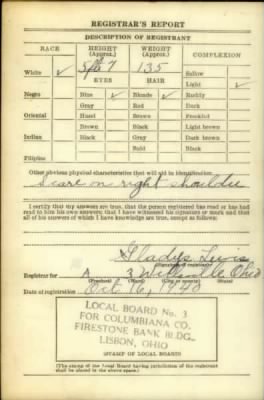 REGISTRAR'S REPORT
DESCRIPTION OF REGISTRANT
RACE HEIGHT (Approx.) WEIGHT (Approx.) COMPLEXION
White ✓ 5 ft 7 135 Sallow
EYES HAIR Light ✓
Negro Blue ✓ Blonde ✓ Ruddy
Gray Red Dark
Oriental Hazel Brown Freckled
Brown Black Light brown
Indian Black Gray Dark brown
Bald Black
Filipino
Other obvious physical characteristics that will aid in identification
Scare on right shoulder
I certify that my answers are true; that the person registered has read or has had
read to him his own answers; that I have witnessed his signature or mark and that
all of his answers of which I have knowledge are true, except as follows:
Gladys Lewis
(Signature of registrar)
Registrar for A 3 Wellsville Ohio
(Precinct) (Ward) (City or county) (State)
Date of registration Oct 16, 1940
LOCAL BOARD No. 3
FOR COLUMBIANA CO.
FIRESTONE BANK BLDG.
LISBON, OHIO
(STAMP OF LOCAL BOARD)
(The stamp of the Local Board having jurisdiction of the registrant
shall be placed in the above space.)